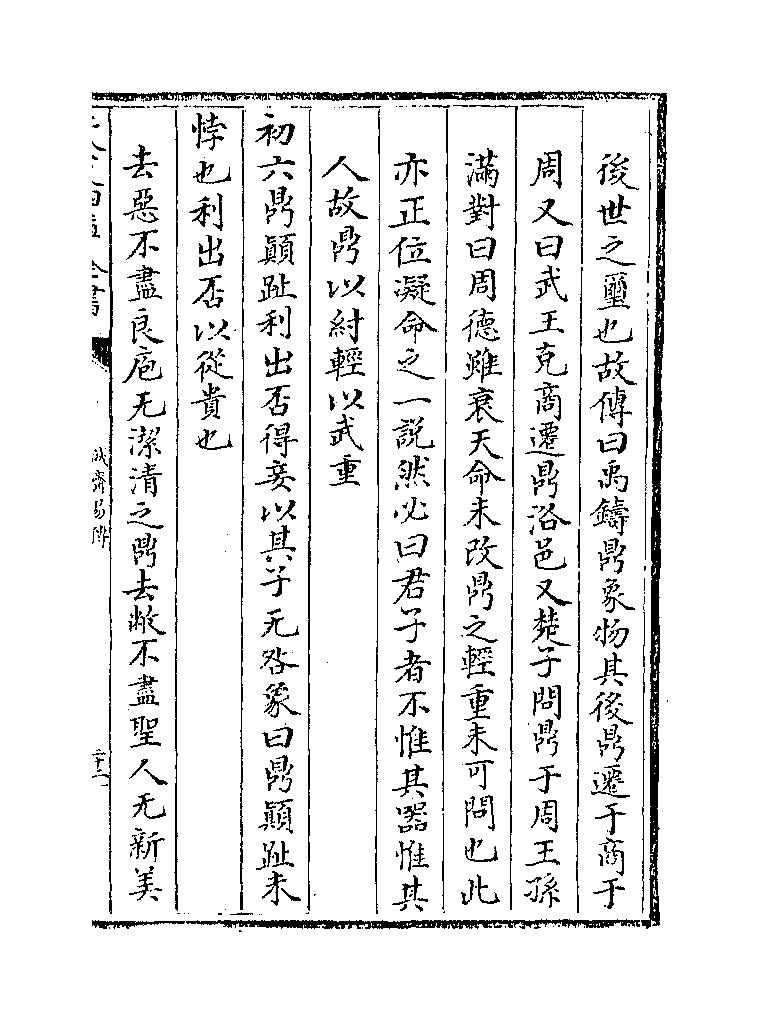 後世之璽也故傳曰禹鑄鼎象物其後鼎遷于商于
周又曰武王克商遷鼎洛邑又楚子問鼎于周王孫
滿對曰周德雖衰天命未改鼎之輕重未可問也此
亦正位凝命之一説然必曰君子者不惟其器惟其
人故鼎以紂輕以武重
初六鼎顚趾利出否得妾以其子无咎象曰鼎顚趾未
悖也利出否以從貴也
去惡不盡良庖无潔清之鼎去敝不盡聖人无新美
誠齋易傳